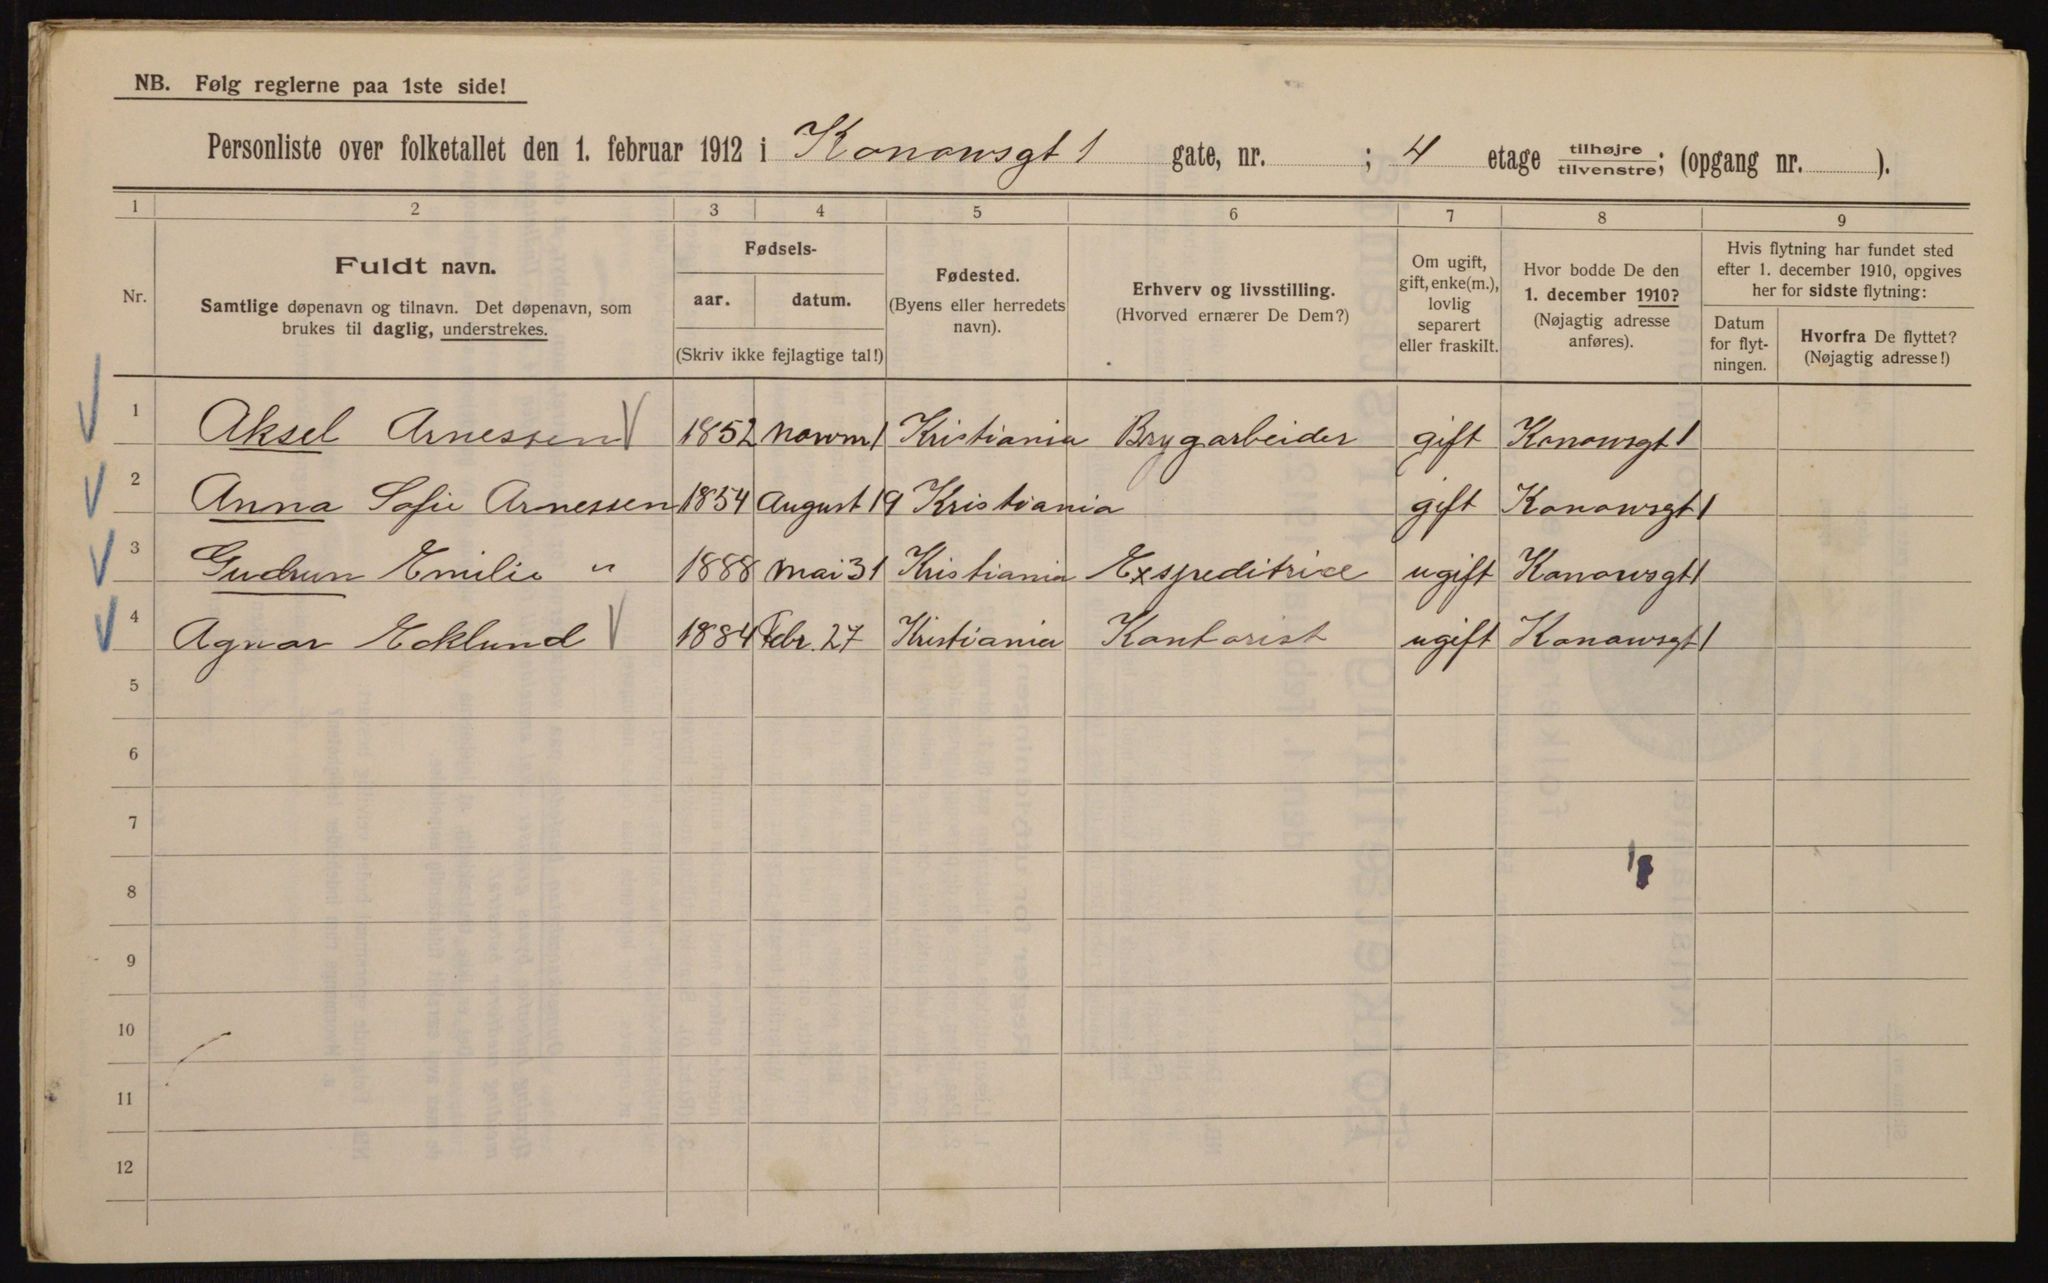 NB. Følg reglerne paa 1ste side!
Personliste over folketallet den 1. februar 1912 i Konowsgt 1 gate, nr. ; 4 etage tilhøjre/tilvenstre; (opgang nr. ).
1 2 3 4 5 6 7 8 9
Nr.
Fuldt navn.
Samtlige døpenavn og tilnavn. Det døpenavn, som
brukes til daglig, understrekes.
Fødsels-
aar. datum.
(Skriv ikke fejlagtige tal!)
Fødested.
(Byens eller herredets
navn).
Erhverv og livsstilling.
(Hvorved ernærer De Dem?)
Om ugift,
gift, enke(m.),
lovlig
separert
eller fraskilt.
Hvor bodde De den
1. december 1910?
(Nøjagtig adresse
anføres).
Hvis flytning har fundet sted
efter 1. december 1910, opgives
her for sidste flytning:
Datum
for flyt-
ningen.
Hvorfra De flyttet?
(Nøjagtig adresse!)
1 Aksel Arnessen 1852 novvm 1 Kristiania Brygarbeider gift Konowsgt 1
2 Anna Sofie Arnessen 1854 August 19 Kristiania gift Konowsgt 1
3 Gudrun Emilie " 1888 mai 31 Kristiania Exspeditrice ugift Konowsgt 1
4 Agnar Ecklund 1884 Febr. 27 Kristiania Kontorist ugift Konowsgt 1
5
6
7
8
9
10
11
12